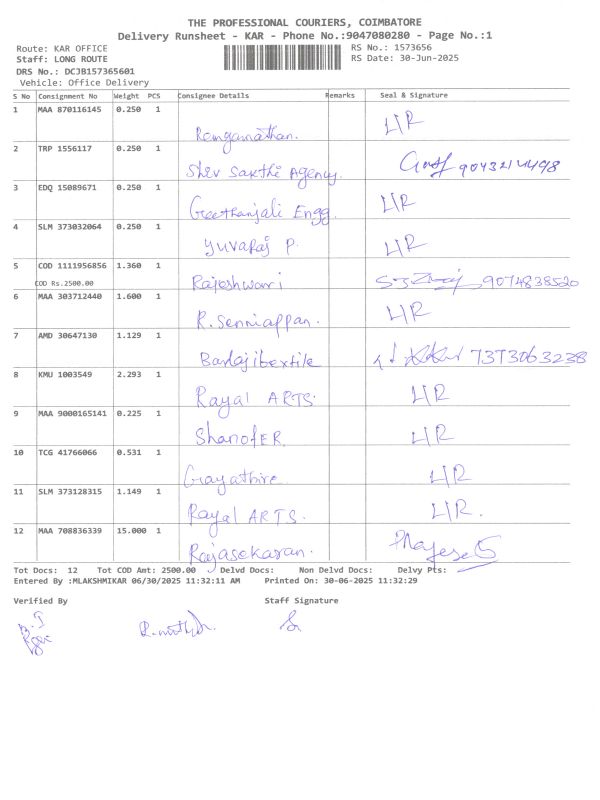 THE PROFESSIONAL COURIERS, COIMBATORE
Delivery Runsheet - KAR - Phone No.:9047080280 - Page No.:1
Route: KAR OFFICE
RS No.: 1573656
Staff: LONG ROUTE
RS Date: 30-Jun-2025
DRS No.: DCJB157365601
Vehicle: Office Delivery
S No Consignment No Weight PCS Consignee Details Remarks Seal & Signature
1 MAA 870116145 0.250 1
Renganathan. L/R
2 TRP 1556117 0.250 1
Shiv Sakthi Agency. 9043214498
3 EDQ 15089671 0.250 1
Geethanjali Engg. L/R
4 SLM 373032064 0.250 1
Yuvaraj P. L/R
5 COD 1111956856 1.360 1
COD Rs.2500.00
Rajeshwari 9074838520
6 MAA 303712440 1.600 1
R. Senniappan. L/R
7 AMD 30647130 1.129 1
Barlajitextile 7373063238
8 KMU 1003549 2.293 1
Rayal ARTS. L/R
9 MAA 9000165141 0.225 1
ShanofER L/R
10 TCG 41766066 0.531 1
Gayathire L/R
11 SLM 373128315 1.149 1
Rayal ARTS. L/R.
12 MAA 708836339 15.000 1
Rajasekaran.
Tot Docs: 12 Tot COD Amt: 2500.00 Delvd Docs: Non Delvd Docs: Delvy Pts:
Entered By :MLAKSHMIKAR 06/30/2025 11:32:11 AM Printed On: 30-06-2025 11:32:29
Verified By Staff Signature